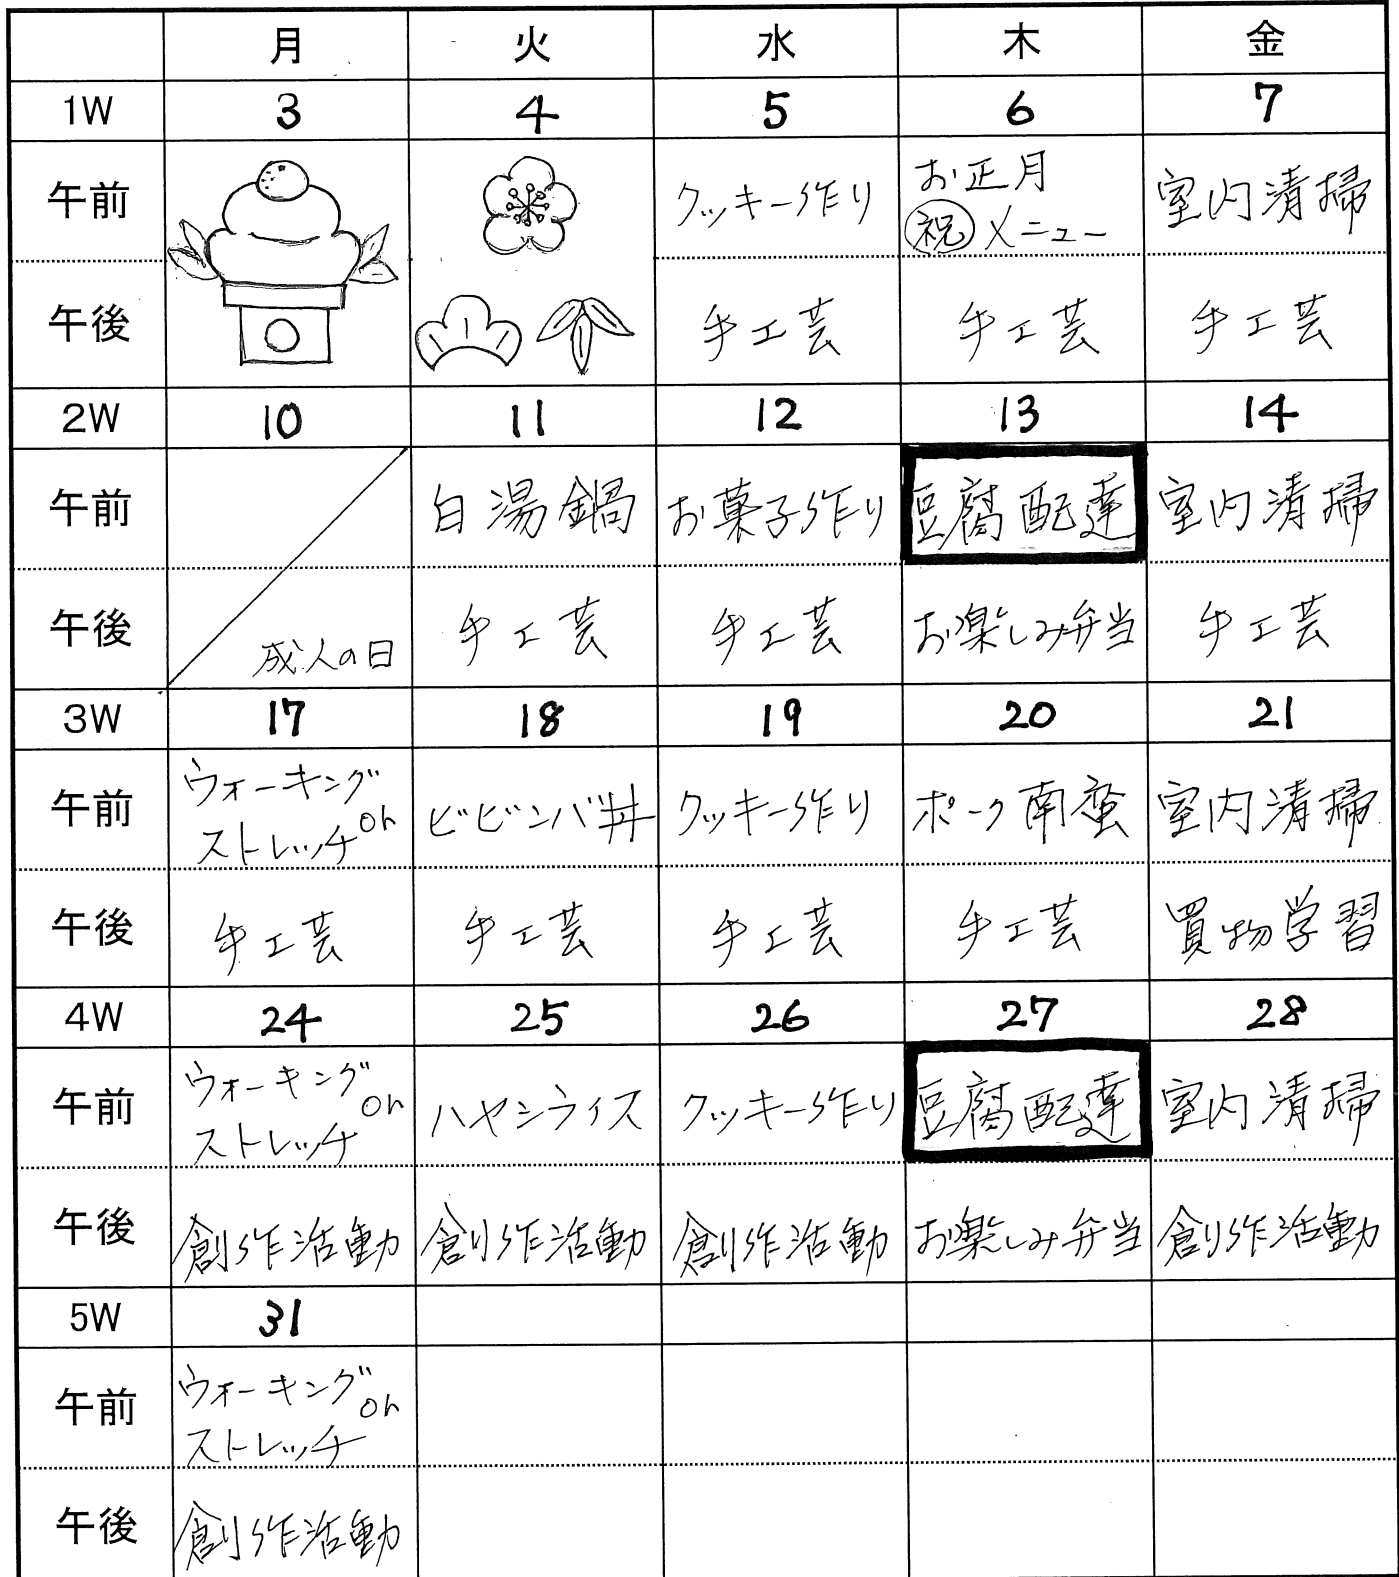 月 火 水 木 金
1W 3 4 5 6 7
午前 クッキー作り お正月 室内清掃
㊗メニュー
午後 手工芸 手工芸 手工芸
2W 10 11 12 13 14
午前 白湯鍋 お菓子作り 豆腐配達 室内清掃
午後 成人の日 手工芸 手工芸 お楽しみ弁当 手工芸
3W 17 18 19 20 21
午前 ウォーキング ビビンバ丼 クッキー作り ポーク南蛮 室内清掃
or
ストレッチ
午後 手工芸 手工芸 手工芸 手工芸 買物学習
4W 24 25 26 27 28
午前 ウォーキング ハヤシライス クッキー作り 豆腐配達 室内清掃
or
ストレッチ
午後 創作活動 創作活動 創作活動 お楽しみ弁当 創作活動
5W 31
午前 ウォーキング
or
ストレッチ
午後 創作活動